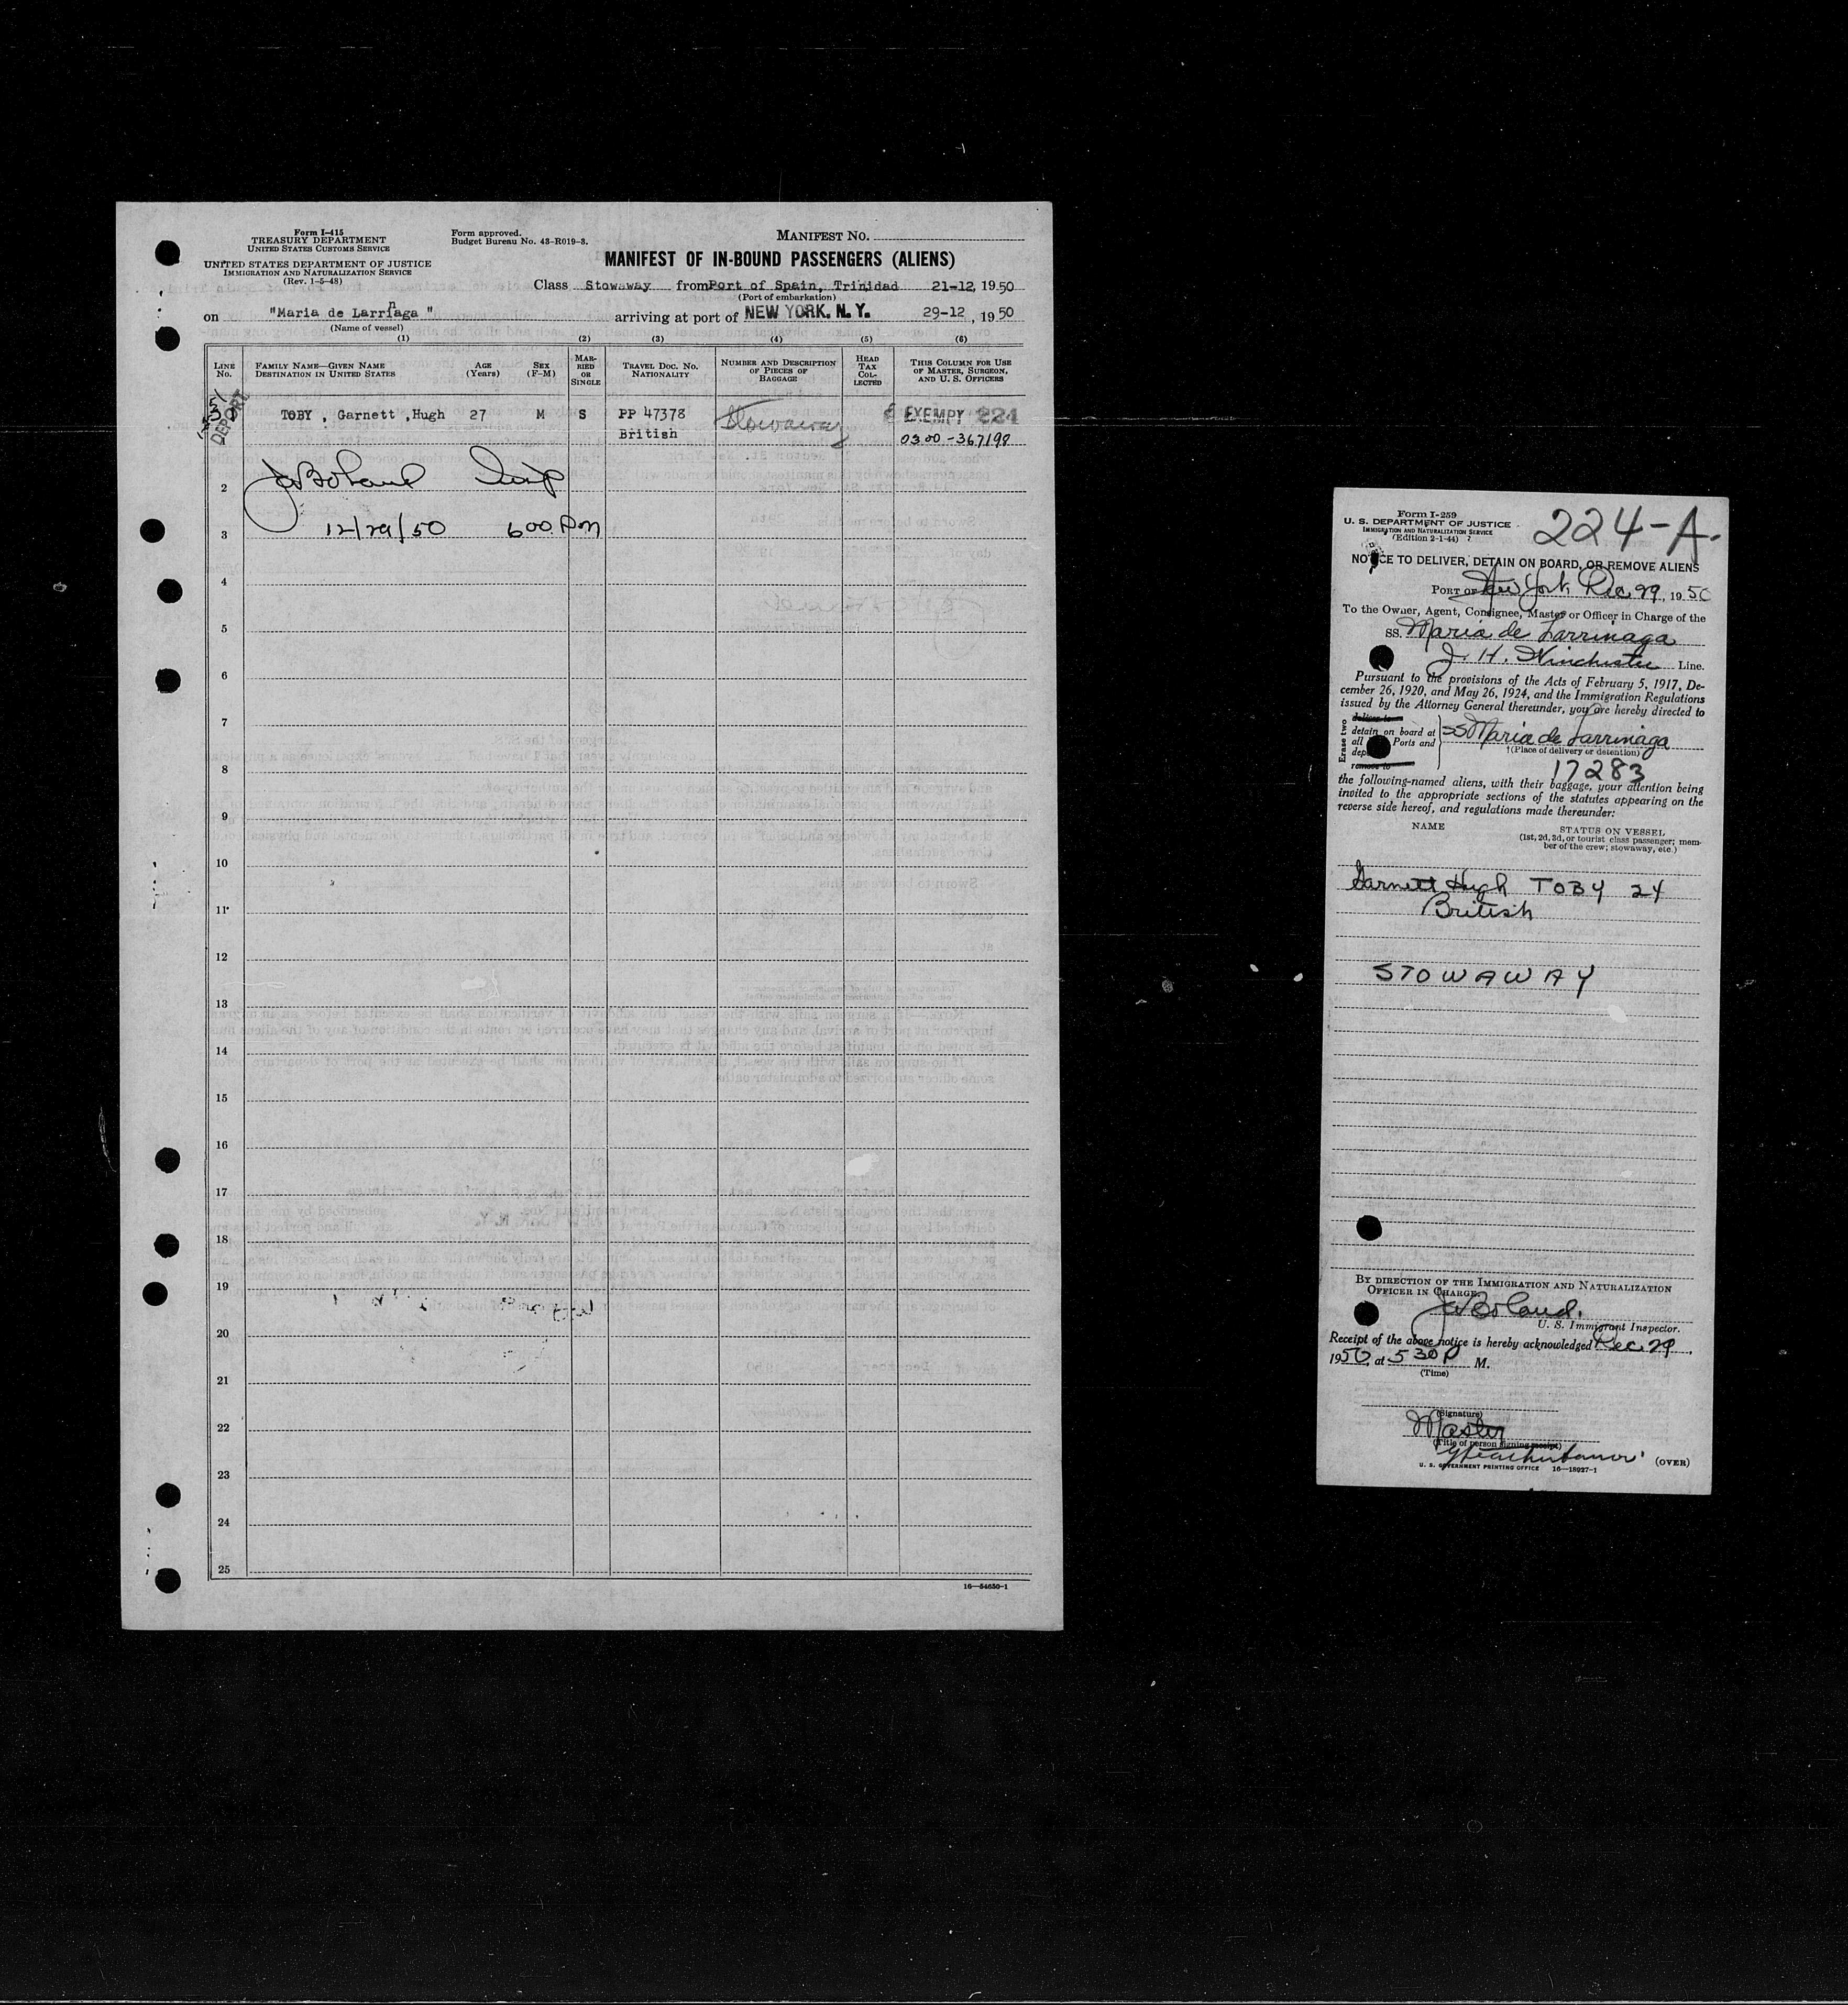 Form I-415
TREASURY DEPARTMENT
UNITED STATES CUSTOMS SERVICE
UNITED STATES DEPARTMENT OF JUSTICE
IMMIGRATION AND NATURALIZATION SERVICE
(Rev. 1-5-48)
Form approved.
Budget Bureau No. 43-R019-3.
MANIFEST NO.
MANIFEST OF IN-BOUND PASSENGERS (ALIENS)
Class Stowaway from Port of Spain, Trinidad 21-12, 1950
(Port of embarkation)
on "Maria de Larrinaga" arriving at port of NEW YORK, N. Y. 29-12, 1950
(Name of vessel)
(1) (2) (3) (4) (5) (6)
LINE No.
FAMILY NAME—GIVEN NAME
DESTINATION IN UNITED STATES
AGE (Years)
SEX (F-M)
MARRIED OR SINGLE
TRAVEL DOC. NO. NATIONALITY
NUMBER AND DESCRIPTION OF PIECES OF BAGGAGE
HEAD TAX COLLECTED
THIS COLUMN FOR USE OF MASTER, SURGEON, AND U. S. OFFICERS
DEPORT
TOBY , Garnett ,Hugh 27 M S PP 47378 Stowaway EXEMPT 224
British 0300-367198
2 JW Boland Insp
3 12/29/50 600 PM
4
5
6
7
8
9
10
11
12
13
14
15
16
17
18
19
20
21
22
23
24
25
16—54650-1
Form I-259
U. S. DEPARTMENT OF JUSTICE
IMMIGRATION AND NATURALIZATION SERVICE
(Edition 2-1-44)
224-A.
NOTICE TO DELIVER, DETAIN ON BOARD, OR REMOVE ALIENS
PORT OF New York Dec 29, 1950
To the Owner, Agent, Consignee, Master or Officer in Charge of the
SS. Maria de Larrinaga
J. H. Winchester Line.
Pursuant to the provisions of the Acts of February 5, 1917, De-
cember 26, 1920, and May 26, 1924, and the Immigration Regulations
issued by the Attorney General thereunder, you are hereby directed to
Erase two
deliver to
detain on board at
all Ports and
remove to
SS Maria de Larrinaga
†(Place of delivery or detention)
17283
the following-named aliens, with their baggage, your attention being
invited to the appropriate sections of the statutes appearing on the
reverse side hereof, and regulations made thereunder:
NAME
STATUS ON VESSEL
(1st, 2d, 3d, or tourist class passenger; mem-
ber of the crew; stowaway, etc.)
Garnett Hugh TOBY 24
British
STOWAWAY
BY DIRECTION OF THE IMMIGRATION AND NATURALIZATION
OFFICER IN CHARGE.
JW Boland.
U. S. Immigrant Inspector.
Receipt of the above notice is hereby acknowledged Dec 29,
1950, at 530 P M.
(Time)
(Signature)
Master
(Title of person signing receipt)
U. S. GOVERNMENT PRINTING OFFICE 16—18927-1
(OVER)